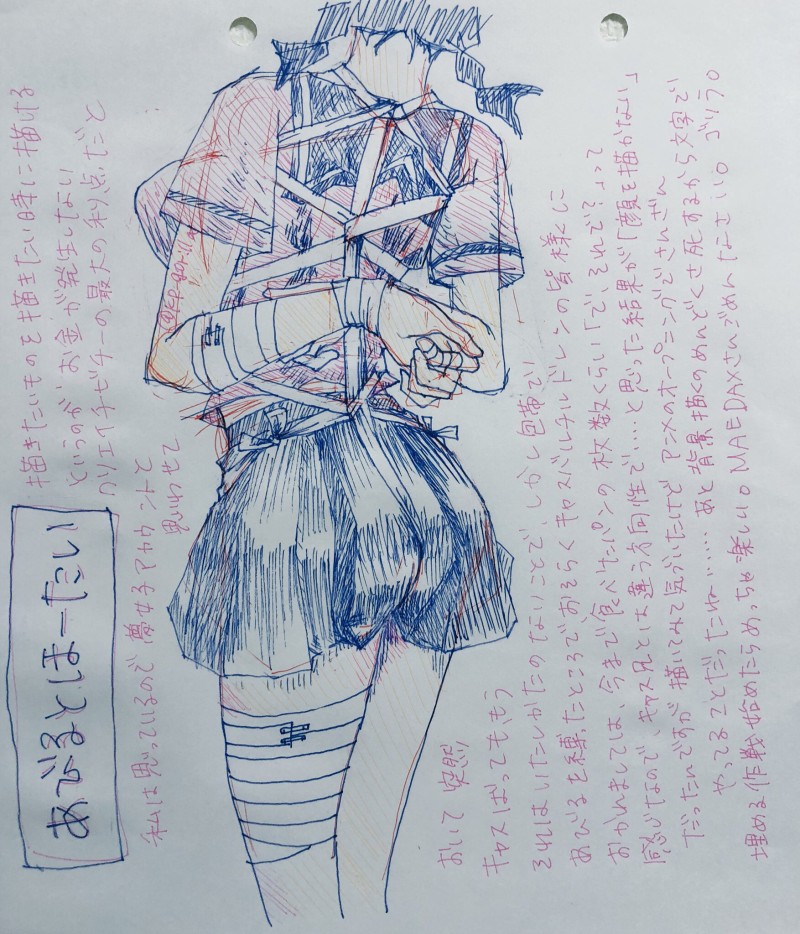 あびるとほーたい
描きたいものを描きたい時に描ける
というのがお金が発生しない
クソエイチビチーの最大の利点だと
私は思っているので夢女子アカウントで
おいて 突然
キャスばっても、もう
それはいたしかたのないことで、しかし包帯で
あびるを縛ったところでおそらくキャスバルチルドレンの皆様に
おかれましては、今まで食べたパンの枚数くらい「で、それで?」って
感じなので、キャス兄とは違う方向性で…と思った結果が「顔を描かない」
だったんですが描いてみて気づいたけどアニメのオープニングでさんざん
やってることだったね……あと背景描くのめんどくさ死するから文字で
埋める作戦始めたらめっちゃ楽しい。MAEDAXさんごめんなさい。ゴリラ。